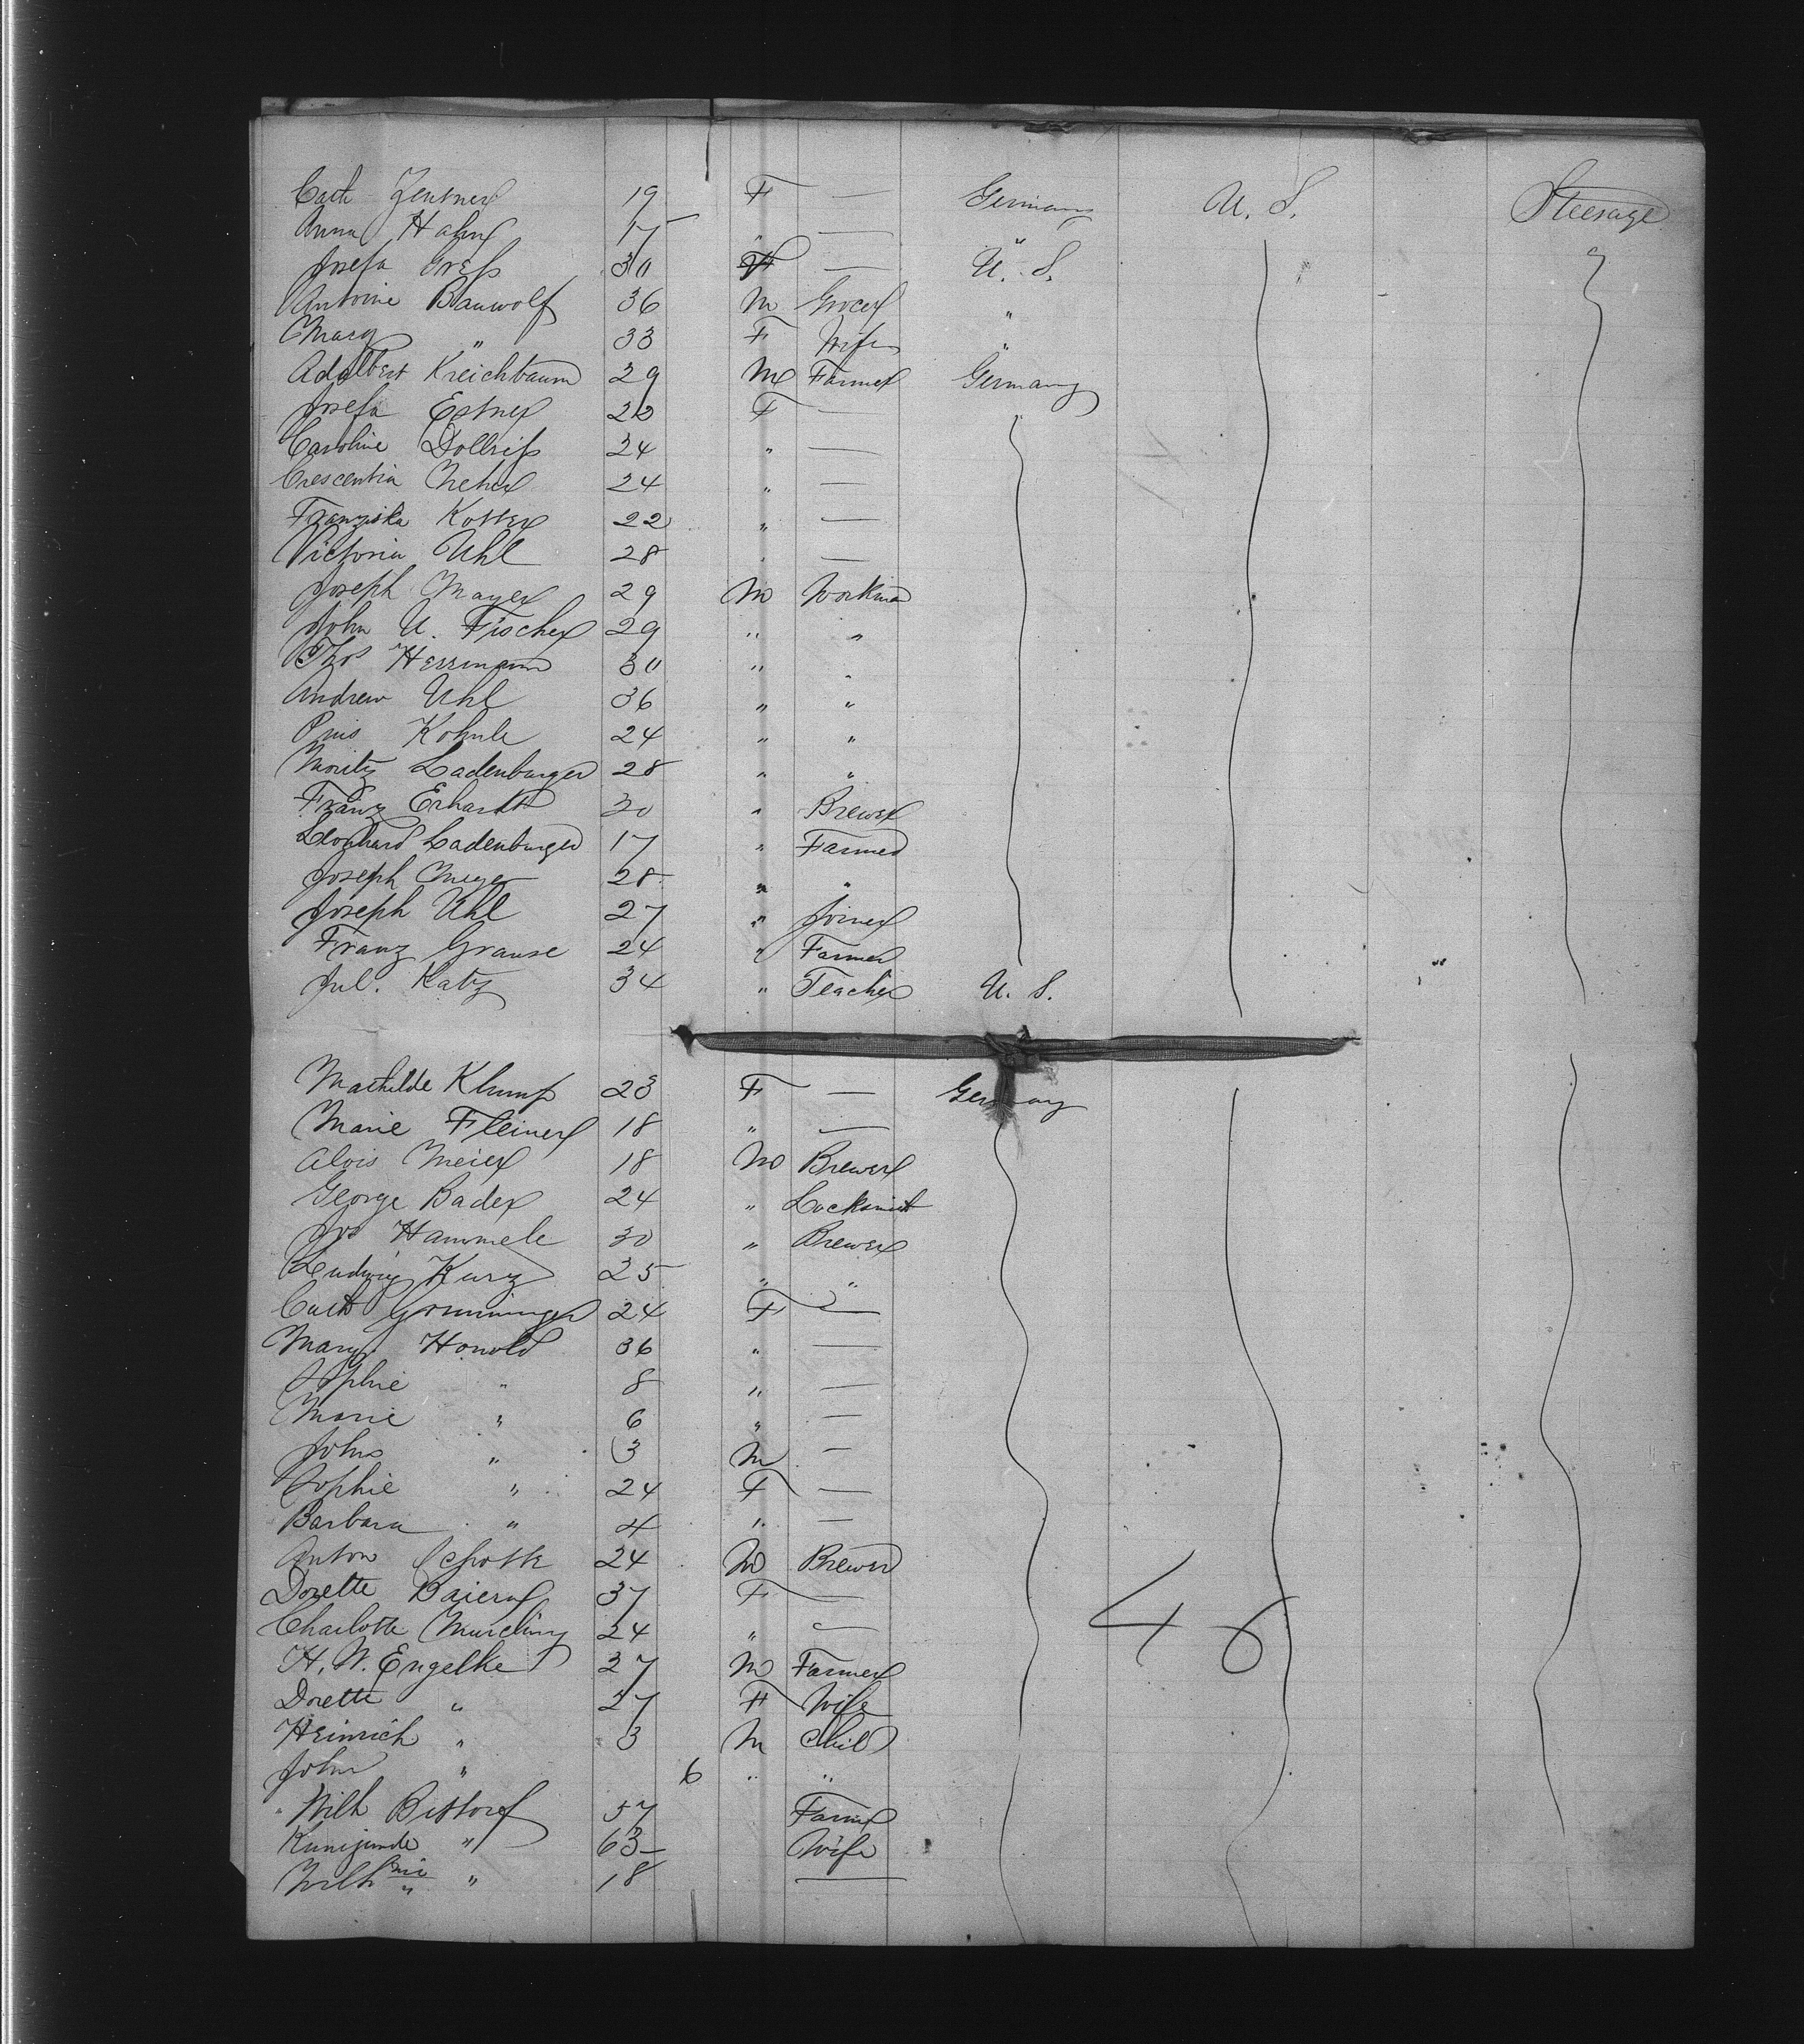 Cath Zentner 19 F — Germany U. S. Steerage
Anna Hahn 17 " — "
Josefa Gress 30 F — U. S.
Antoine Bauwolf 36 M Grocer "
Mary " 33 F Wife "
Adalbert Kreichbaum 29 M Farmer Germany
Josefa Estner 22 F —
Caroline 24 " —
Crescentia Neher 24 " —
Franziska Kotter 22 " —
Victoria Uhl 28 " —
Joseph Mayer 29 M Workman
John U. Fischer 29 " "
Thos Herrmann 30 " "
Andrew Uhl 36 " "
Pius Kohnle 24 " "
Moritz Ladenburger 28 " "
Franz Erhardt 30 " Brewer
Leonhard Ladenburger 17 " Farmer
Joseph Meyer 28 " "
Joseph Uhl 27 " Joiner
Franz Grause 24 " Farmer
Jul. Katz 34 " Teacher U. S.
Mathilde Klump 23 F — Germany
Marie Fleiner 18 " —
Alois Meier 18 M Brewer
George Bader 24 " Locksmith
Jos Hammele 30 " Brewer
Ludwig Kurz 25 " "
Cath Grunninger 24 F —
Mary Honold 36 " —
Sophie " 8 " —
Marie " 6 " —
John " 3 M —
Sophie " 24 F —
Barbara " 4 " —
Anton Schott 24 M Brewer
Dorette 37 F —
Charlotte 24 " —
H. W. Engelke 27 M Farmer
Dorette " 27 F Wife
Heinrich " 3 M Child
John " 6 " "
Wilh Bittorf 57 Farmer
Kunijunde " 63 Wife
Wilhmi " 18 —
46